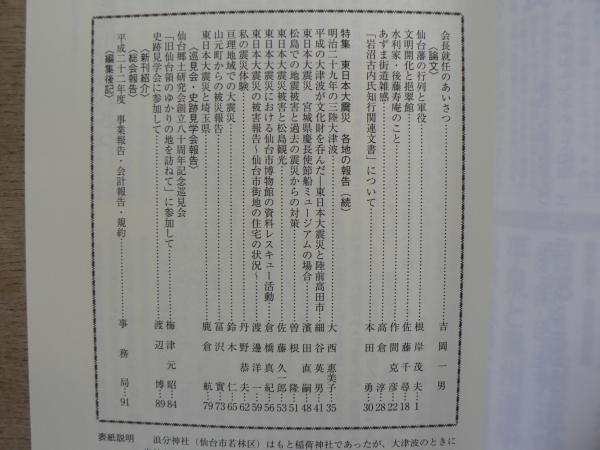 会長就任のあいさつ……吉岡一男
〈論文〉
仙台藩の行列と軍役……根岸茂夫 1
文明開化と挹翠館……佐藤千尋 18
水利家・後藤寿庵のこと……作間克彦 22
あずま街道雑感……高倉淳 28
「岩沼古内氏知行関連文書」について……本田勇 30
特集 東日本大震災 各地の報告(続)
明治二十九年の三陸大津波……大西恵美子 35
平成の大津波が文化財を呑んだ―東日本大震災と陸前高田市…細谷英男 41
東日本大震災 宮城県慶長使節船ミュージアムの場合……濱田直嗣 48
松島での地震被害と過去の震災からの対策……曽根隆 51
東日本大震災被害と松島観光……佐藤久一郎 53
東日本大震災における仙台市博物館の資料レスキュー活動……倉橋真紀 56
東日本大震災の被害報告~仙台市街地の住宅の状況~……渡邊洋一 59
私の震災体験……丹野恭夫 62
亘理地域での大震災……鈴木仁 65
山元町からの被災報告……冨沢實 73
東日本大震災と埼玉県……鹿倉航 79
〈巡見会・史跡見学会報告〉
仙台郷土研究会創立八十周年記念巡見会
「旧仙台領のゆかりの地を訪ねて」に参加して……梅津元昭 84
史跡見学会に参加して……渡辺博 89
〈新刊紹介〉
〈総会報告〉
平成二十二年度 事業報告・会計報告・規約……事務局 91
〈編集後記〉
表紙説明 浪分神社(仙台市若林区)はもと稲荷神社であったが、大津波のときに